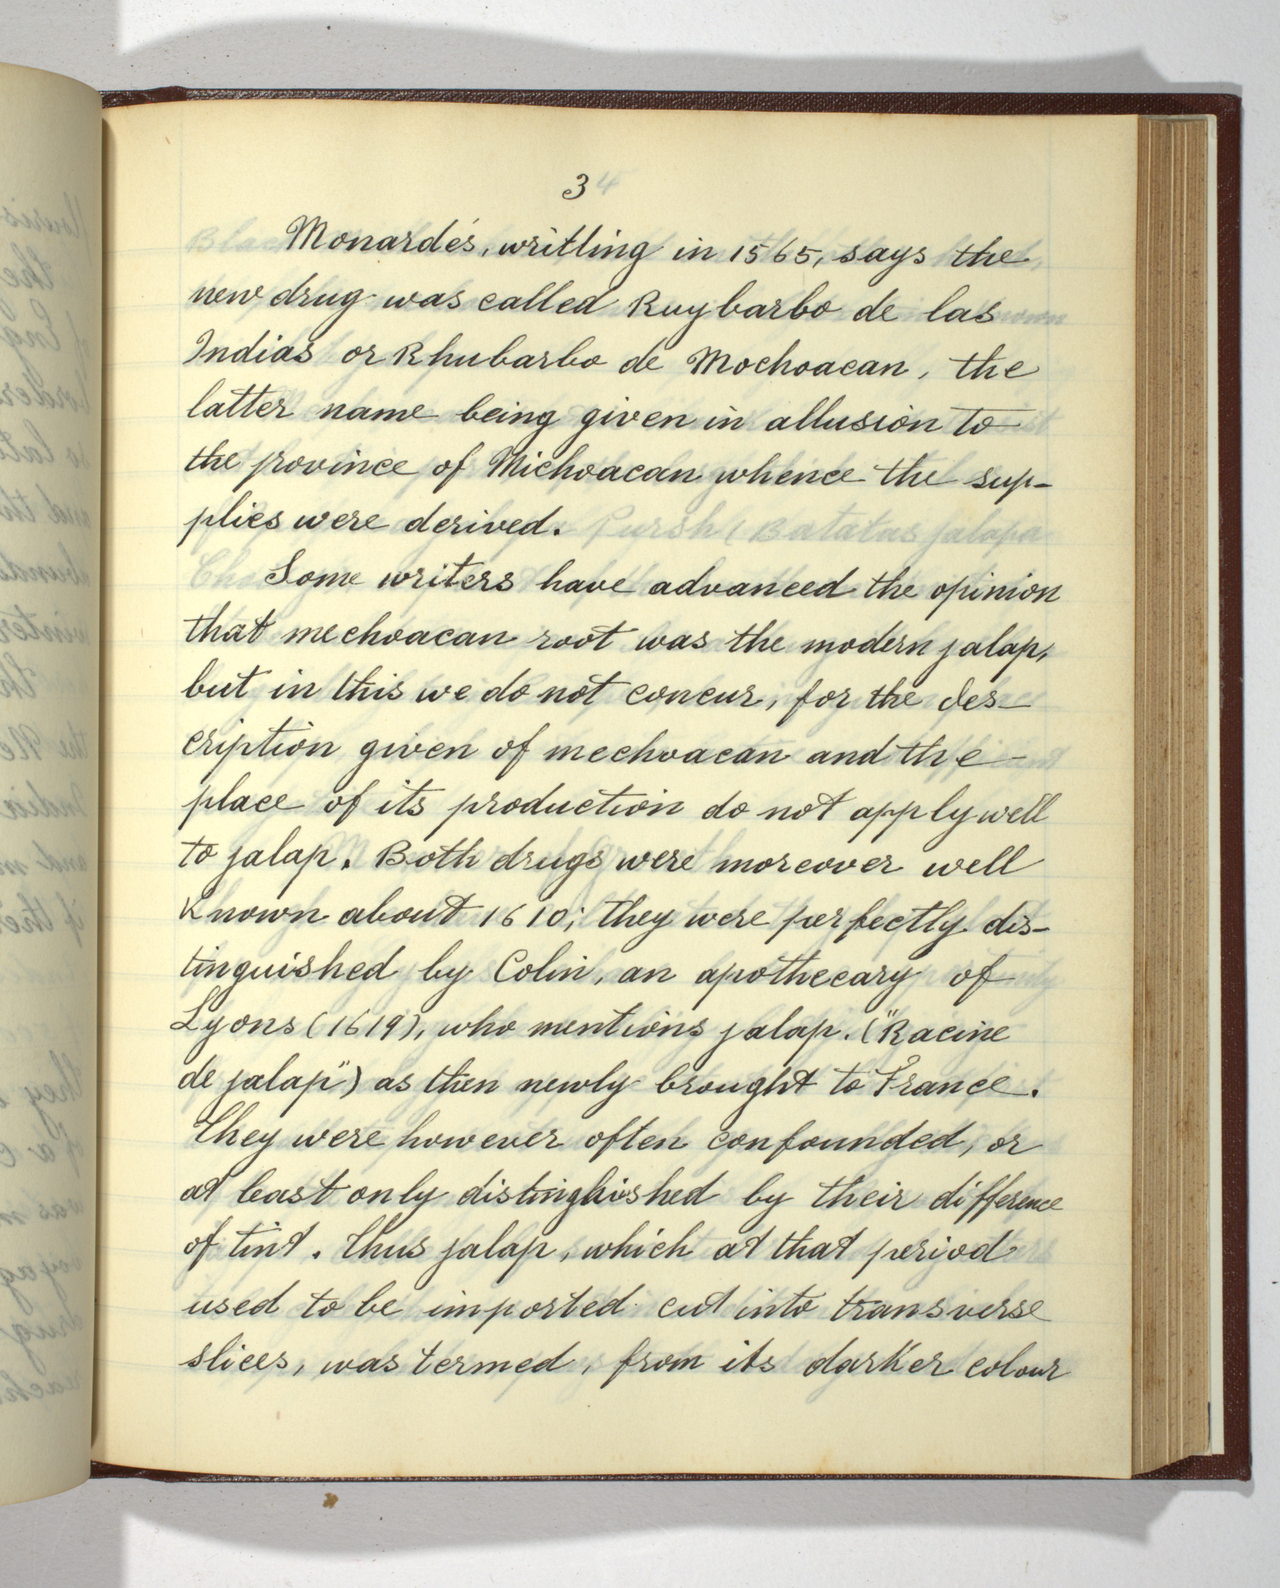 3
Monardés, writling in 1565, says the
new drug was called Ruybarbo de las
Indias or Rhubarbo de Mochoacan, the
latter name being given in allusion to
the province of Michoacan whence the sup-
plies were derived.
Some writers have advanced the opinion
that mechoacan root was the modern jalap,
but in this we do not concur, for the des-
cription given of mechoacan and the
place of its production do not apply well
to jalap. Both drugs were moreover well
known about 1610; they were perfectly dis-
tinguished by Colin, an apothecary of
Lyons (1619), who mentions jalap. ("Racine
de jalap") as then newly brought to France.
They were however often confounded, or
at least only distinghished by their difference
of tint. Thus jalap, which at that period
used to be imported cut into transverse
slices, was termed, from its darker colour